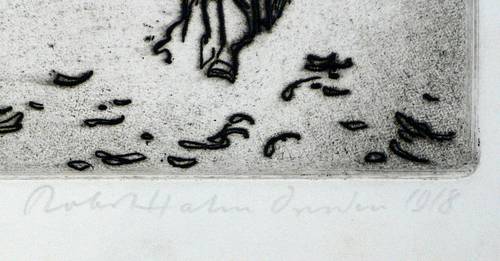 Robert Hahn Dresden 1918